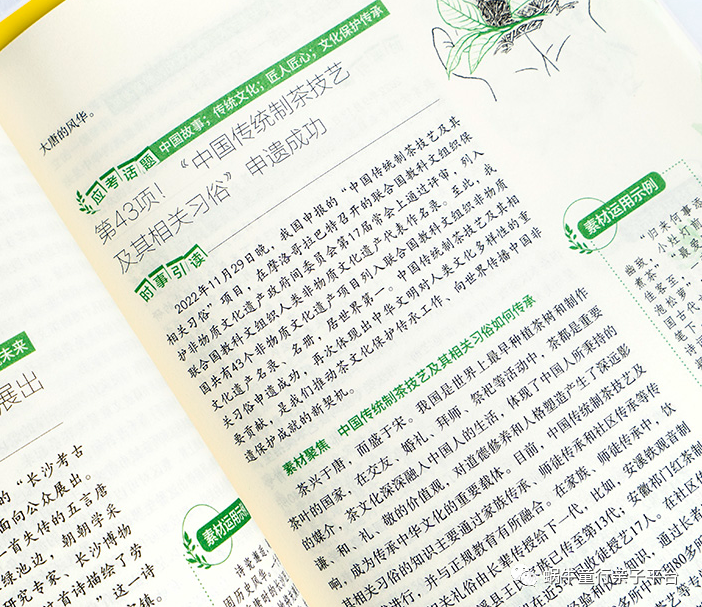 大唐的风华。
应考话题
中国故事；传统文化；匠人匠心；文化保护传承
第43项！“中国传统制茶技艺
及其相关习俗”申遗成功
时事引读
2022年11月29日晚，我国申报的“中国传统制茶技艺及其
相关习俗”项目，在摩洛哥拉巴特召开的联合国教科文组织保
护非物质文化遗产政府间委员会第17届常会上通过评审，列入
联合国教科文组织人类非物质文化遗产代表作名录。至此，我
国共有43个非物质文化遗产项目列入联合国教科文组织非物质
文化遗产名录、名册，居世界第一。中国传统制茶技艺及其相
关习俗申遗成功，再次体现出中华文明对人类文化多样性的重
要贡献，是我们推动茶文化保护传承工作、向世界传播中国非
遗保护成就的新契机。
素材聚焦 中国传统制茶技艺及其相关习俗如何传承
茶兴于唐，而盛于宋。我国是世界上最早种植茶树和制作
茶叶的国家，在交友、婚礼、拜师、祭祀等活动中，茶都是重要
的媒介，茶文化深深融入中国人的生活，体现了中国人所秉持的
谦、和、礼、敬的价值观，对道德修养和人格塑造产生了深远影
响，成为传承中华文化的重要载体。目前，中国传统制茶技艺及
其相关习俗的知识主要通过家族传承、师徒传承和社区传承等传
进行，并与正规教育有所融合。在家族、师徒传承中，饮
相关礼俗由长辈传授给下一代，比如，安溪铁观音制
县王 族已传至第13代；安徽祁门红茶制
徒授艺17人。在社区传
识，通过长者
80多所
素材运用示例
“归来何事添
幽致，小灶灯
“最爱
佳客至，
煮茶”
池松萝”
国古代
笔下
诗
未来
展出
的“长沙考古
面向公众展出。
一首失传的五言唐
绿池边，朝朝学采
研究专家、长沙博物
时首诗描绘了劳
”这一诗
素材运用示例
国历史风
蜗牛童行亲子平台